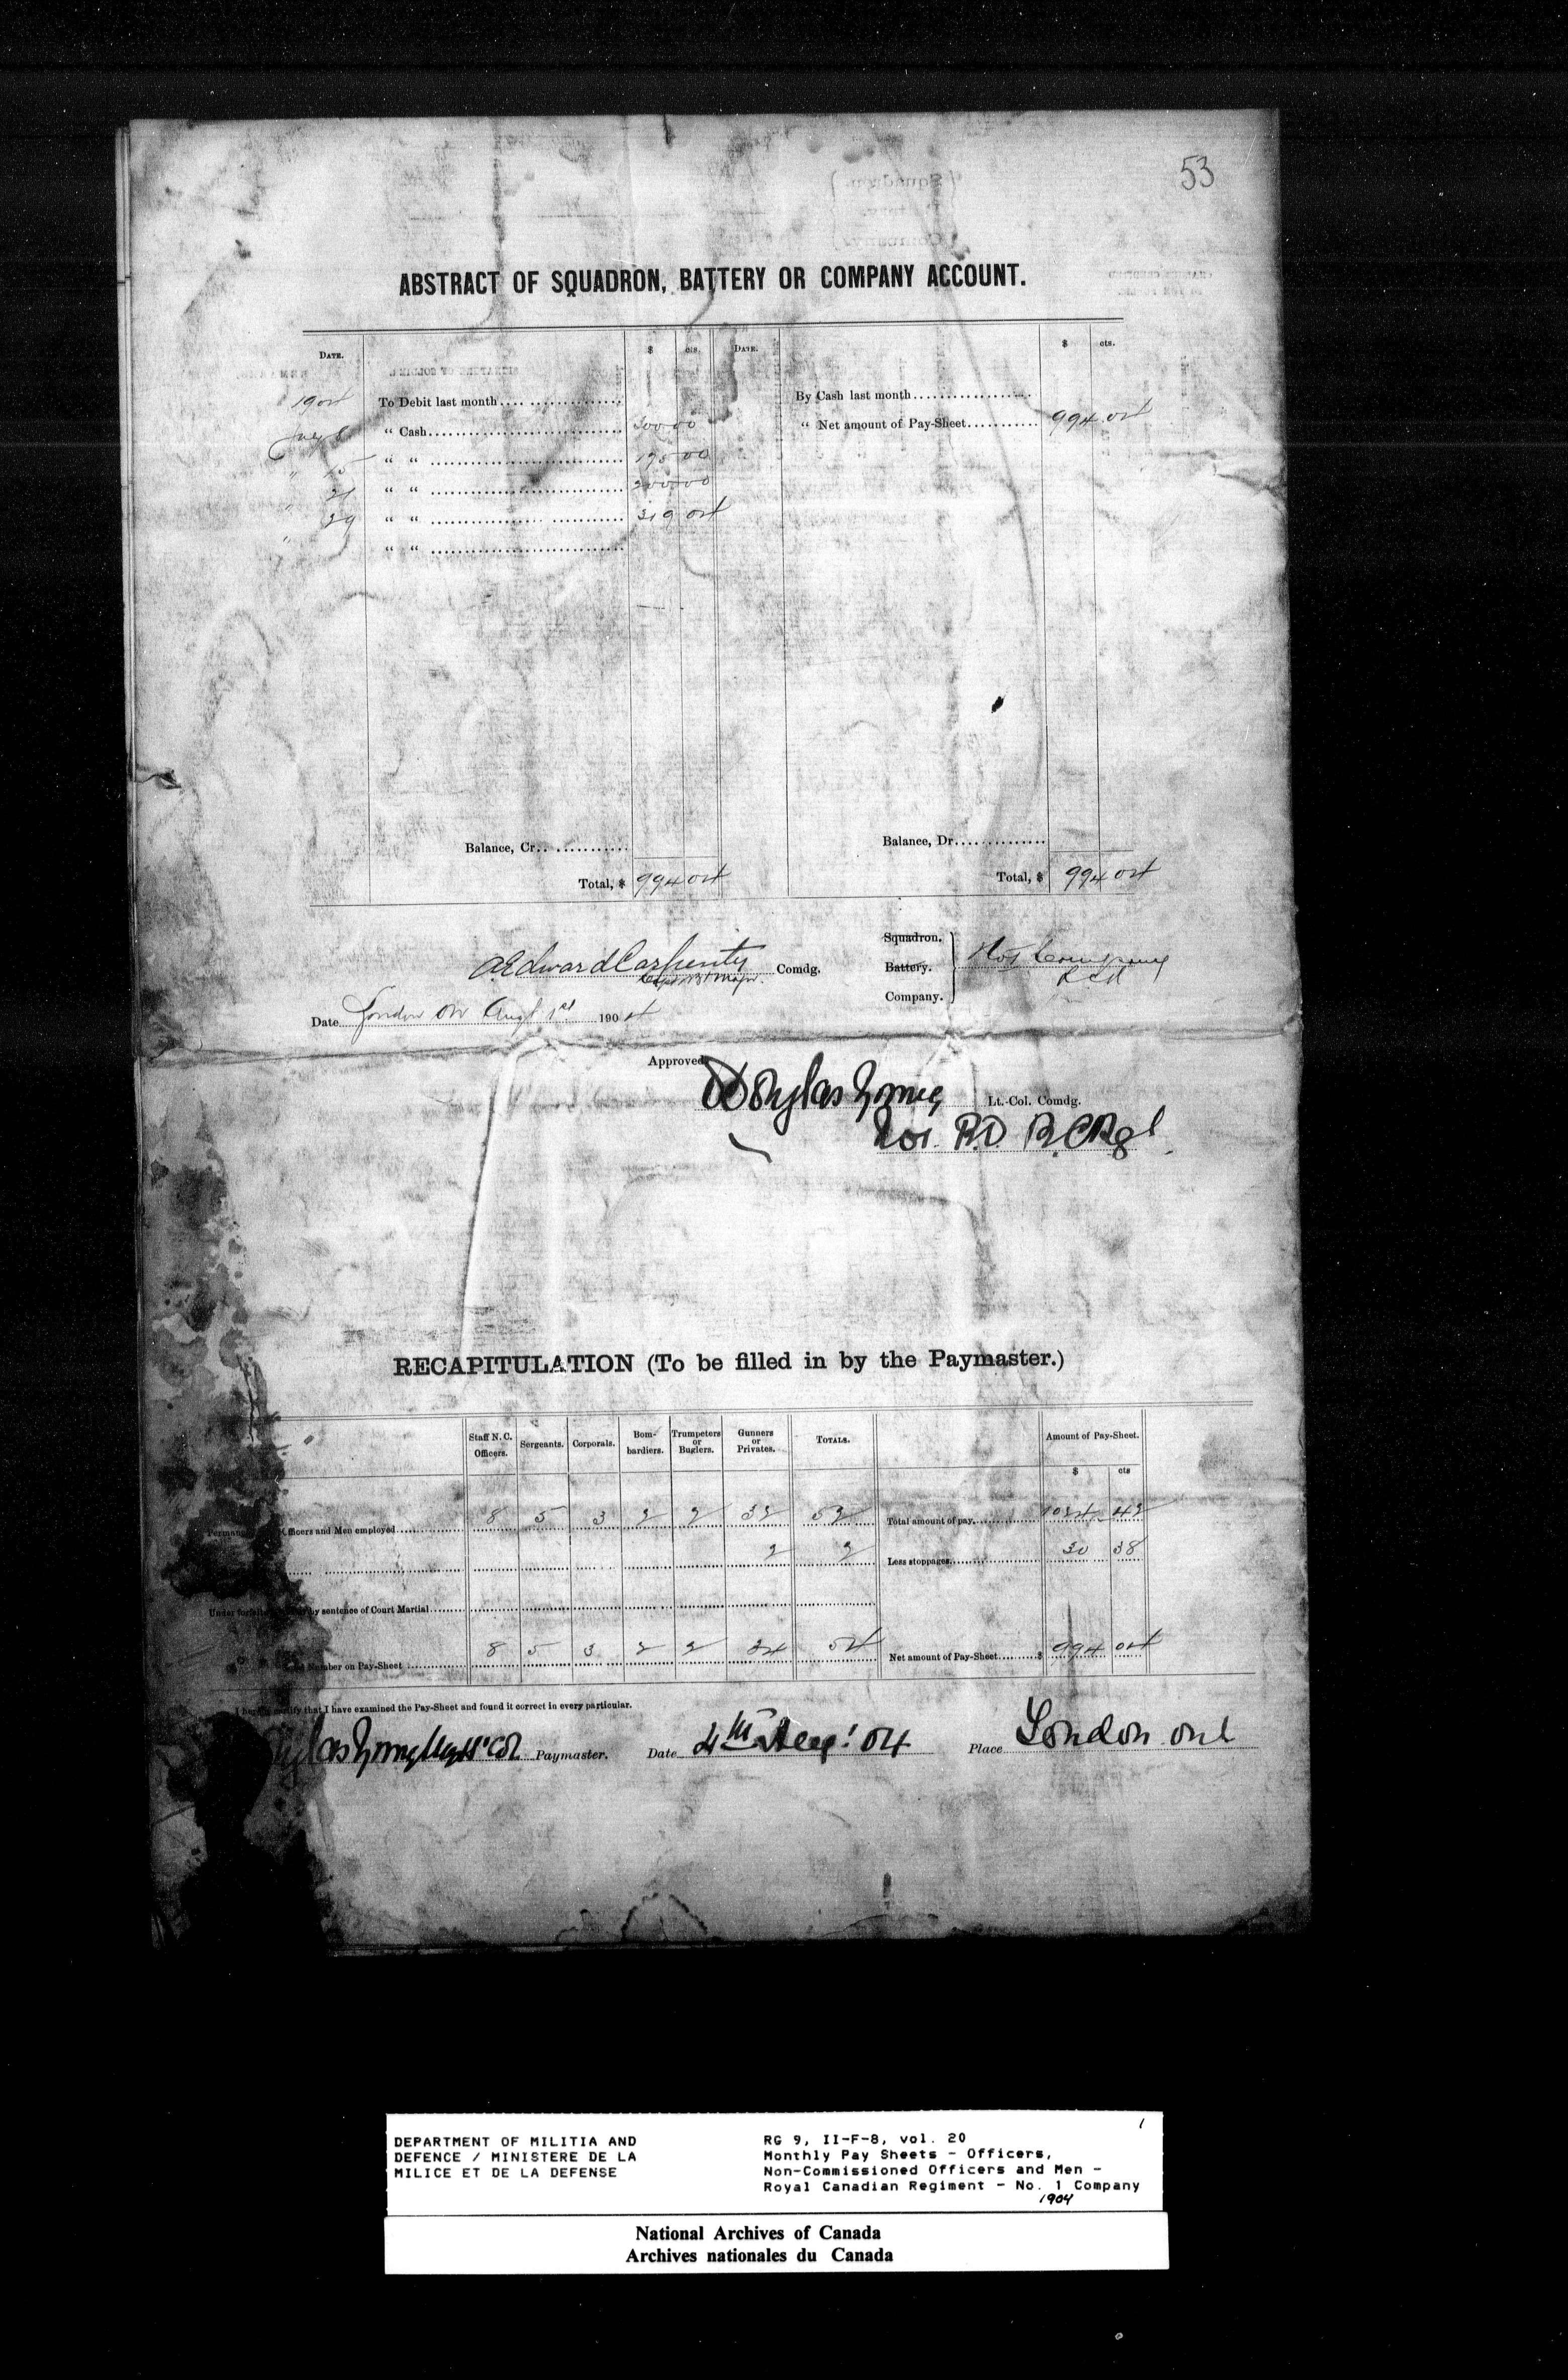 53
ABSTRACT OF SQUADRON, BATTERY OR COMPANY ACCOUNT.
DATE. $ cts. DATE. $ cts.
1904 To Debit last month By Cash last month
July 8 " Cash 300 00 " Net amount of Pay-Sheet 994 04
" 15 " " 175 00
" 21 " " 200 00
" 29 " " 319 04
" "
Balance, Cr. Balance, Dr.
Total, $ 994 04 Total, $ 994 04
Squadron.
A Edward Carpenter Comdg. Battery. No 1 Company
Capt Bt Major. RCR
Company.
Date London On Augt 1st 1904
Approved,
Lt.-Col. Comdg.
No 1. R.D. R.C.Regt.
RECAPITULATION (To be filled in by the Paymaster.)
Staff N. C. Officers. Sergeants. Corporals. Bom-bardiers. Trumpeters or Buglers. Gunners or Privates. TOTALS. Amount of Pay-Sheet.
$ cts
Officers and Men employed 8 5 3 2 2 32 52 Total amount of pay 1024 42
2 2 Less stoppages 30 38
by sentence of Court Martial
Number on Pay-Sheet 8 5 3 2 2 34 54 Net amount of Pay-Sheet $ 994 04
I hereby certify that I have examined the Pay-Sheet and found it correct in every particular.
Paymaster. Date 4th Aug! 04 Place London Ont
1
DEPARTMENT OF MILITIA AND
DEFENCE / MINISTERE DE LA
MILICE ET DE LA DEFENSE
RG 9, II-F-8, vol. 20
Monthly Pay Sheets - Officers,
Non-Commissioned Officers and Men -
Royal Canadian Regiment - No. 1 Company
1904
National Archives of Canada
Archives nationales du Canada